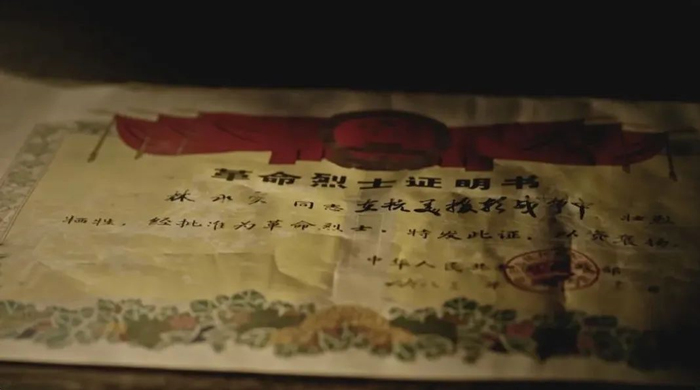 革命烈士证明书
同志在抗美援朝战争中 壮烈
牺牲，经批准为革命烈士。特发此证，以资褒扬。
中华人民共 部